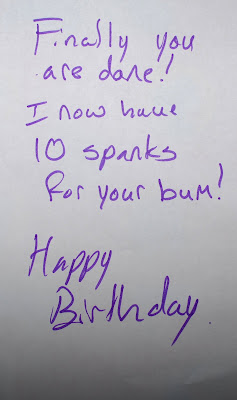 Finally you
are done!
I now have
10 spanks
for your bum!
Happy
Birthday.